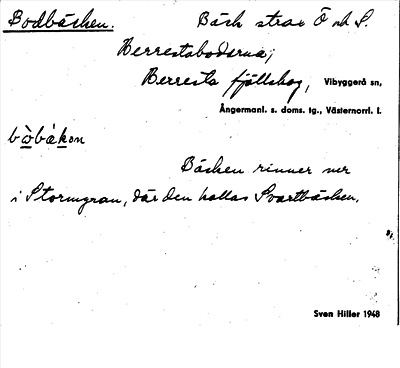 Bodbäcken. Bäck strax Ö och S.
Berrestabodarna;
Berresta fjällskog, Vibyggerå sn,
Ångermanl. s. doms. tg., Västernorrl. l.
bo̲bäk̲ən
Bäcken rinner ner
i Stormyran, där den kallas Svartbäcken.
Sven Hiller 1948